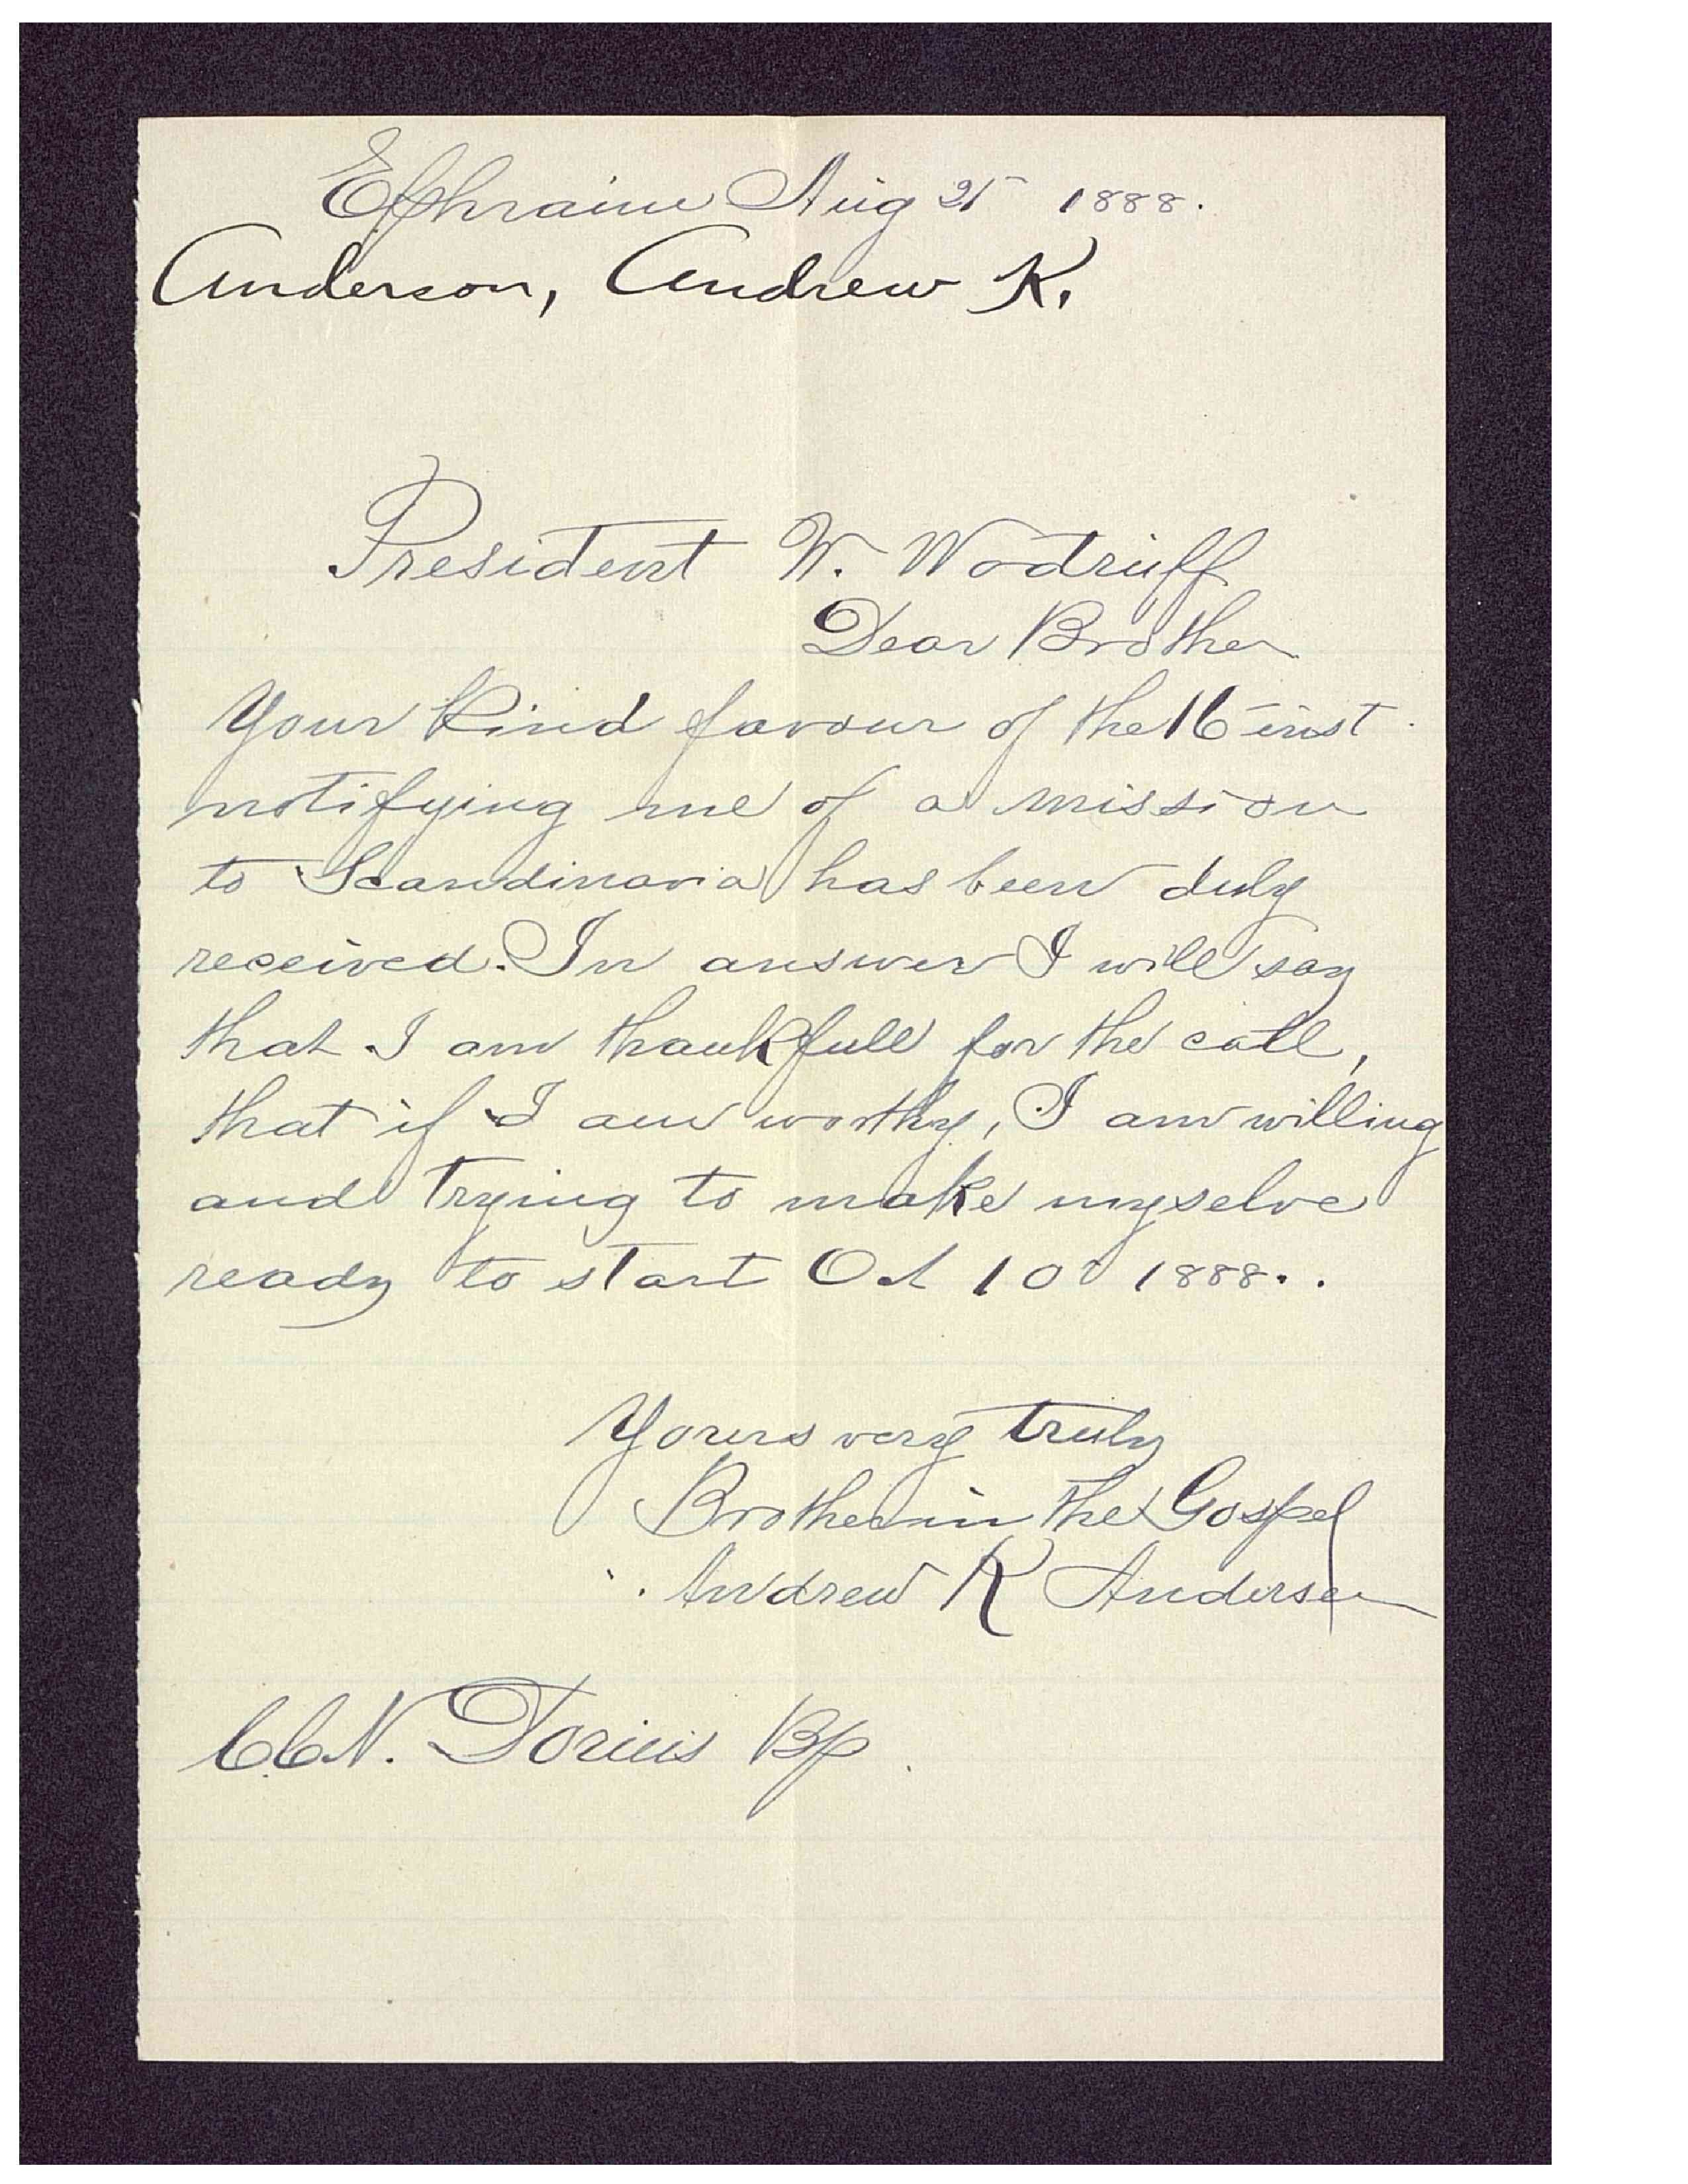 Ephraim Aug 21 1888.
Anderson, Andrew K.
President W. Woodruff
Dear Brother
Your Kind favour of the 16 inst
notifying me of a mission
to Scandinavia has been duly
received. In answer I will say
that I am thankfull for the call,
that if I am worthy, I am willing
and trying to make myselve
ready to start Oct 10 1888..
Yours very truly
Brother in the Gospel
Andrew K Andersen
C.C.N. Dorius Bp